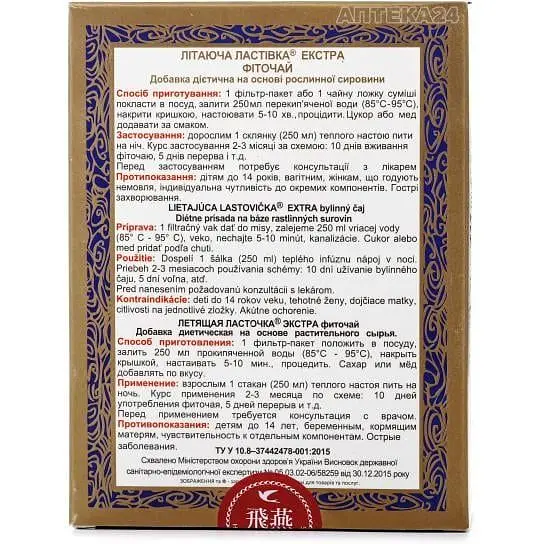 АПТЕКА24
ЛІТАЮЧА ЛАСТІВКА® ЕКСТРА
ФІТОЧАЙ
Добавка дієтична на основі рослинної сировини
Спосіб приготування: 1 фільтр-пакет або 1 чайну ложку суміші
покласти в посуд, залити 250мл перекип'яченої води (85°С-95°С),
накрити кришкою, настоювати 5-10 хв., процідити. Цукор або мед
додавати за смаком.
Застосування: дорослим 1 склянку (250 мл) теплого настою пити
на ніч. Курс застосування 2-3 місяці за схемою: 10 днів вживання
фіточаю, 5 днів перерва і т.д.
Перед застосуванням потребує консультації з лікарем
Протипоказання: дітям до 14 років, вагітним, жінкам, що годують
немовля, індивідуальна чутливість до окремих компонентів. Гострі
захворювання.
LIETAJÚCA LASTOVIČKA® EXTRA bylinný čaj
Diétne prísada na báze rastlinných surovín
Príprava: 1 filtračný vak dať do misy, zalejeme 250 ml vriacej vody
(85° C - 95° C), veko, nechajte 5-10 minút, kanalizácie. Cukor alebo
med pridať podľa chuti.
Použitie: Dospelí 1 šálka (250 ml) teplého infúznu nápoj v noci.
Priebeh 2-3 mesiacoch používania schémy: 10 dní užívanie bylinného
čaju, 5 dní voľna, atď.
Pred nanesením požadovanú konzultácii s lekárom.
Kontraindikácie: deti do 14 rokov veku, tehotné ženy, dojčiace matky,
citlivosti na jednotlivé zložky. Akútne ochorenie.
ЛЕТЯЩАЯ ЛАСТОЧКА® ЭКСТРА фиточай
Добавка диетическая на основе растительного сырья.
Способ приготовления: 1 фильтр-пакет положить в посуду,
залить 250 мл прокипяченной воды (85°С - 95°С), накрыть
крышкой, настаивать 5-10 мин., процедить. Сахар или мёд
добавлять по вкусу.
Применение: взрослым 1 стакан (250 мл) теплого настоя пить на
ночь. Курс применения 2-3 месяца по схеме: 10 дней
употребления фиточая, 5 дней перерыв и т.д.
Перед применением требуется консультация с врачом.
Противопоказания: детям до 14 лет, беременным, кормящим
матерям, чувствительность к отдельным компонентам. Острые
заболевания.
ТУ У 10.8–37442478-001:2015
Схвалено Міністерством охорони здоров'я України Висновок державної
санітарно-епідеміологічної експертизи № 05.03.02-06/58259 від 30.12.2015 року
для товарів та послуг.
飛燕